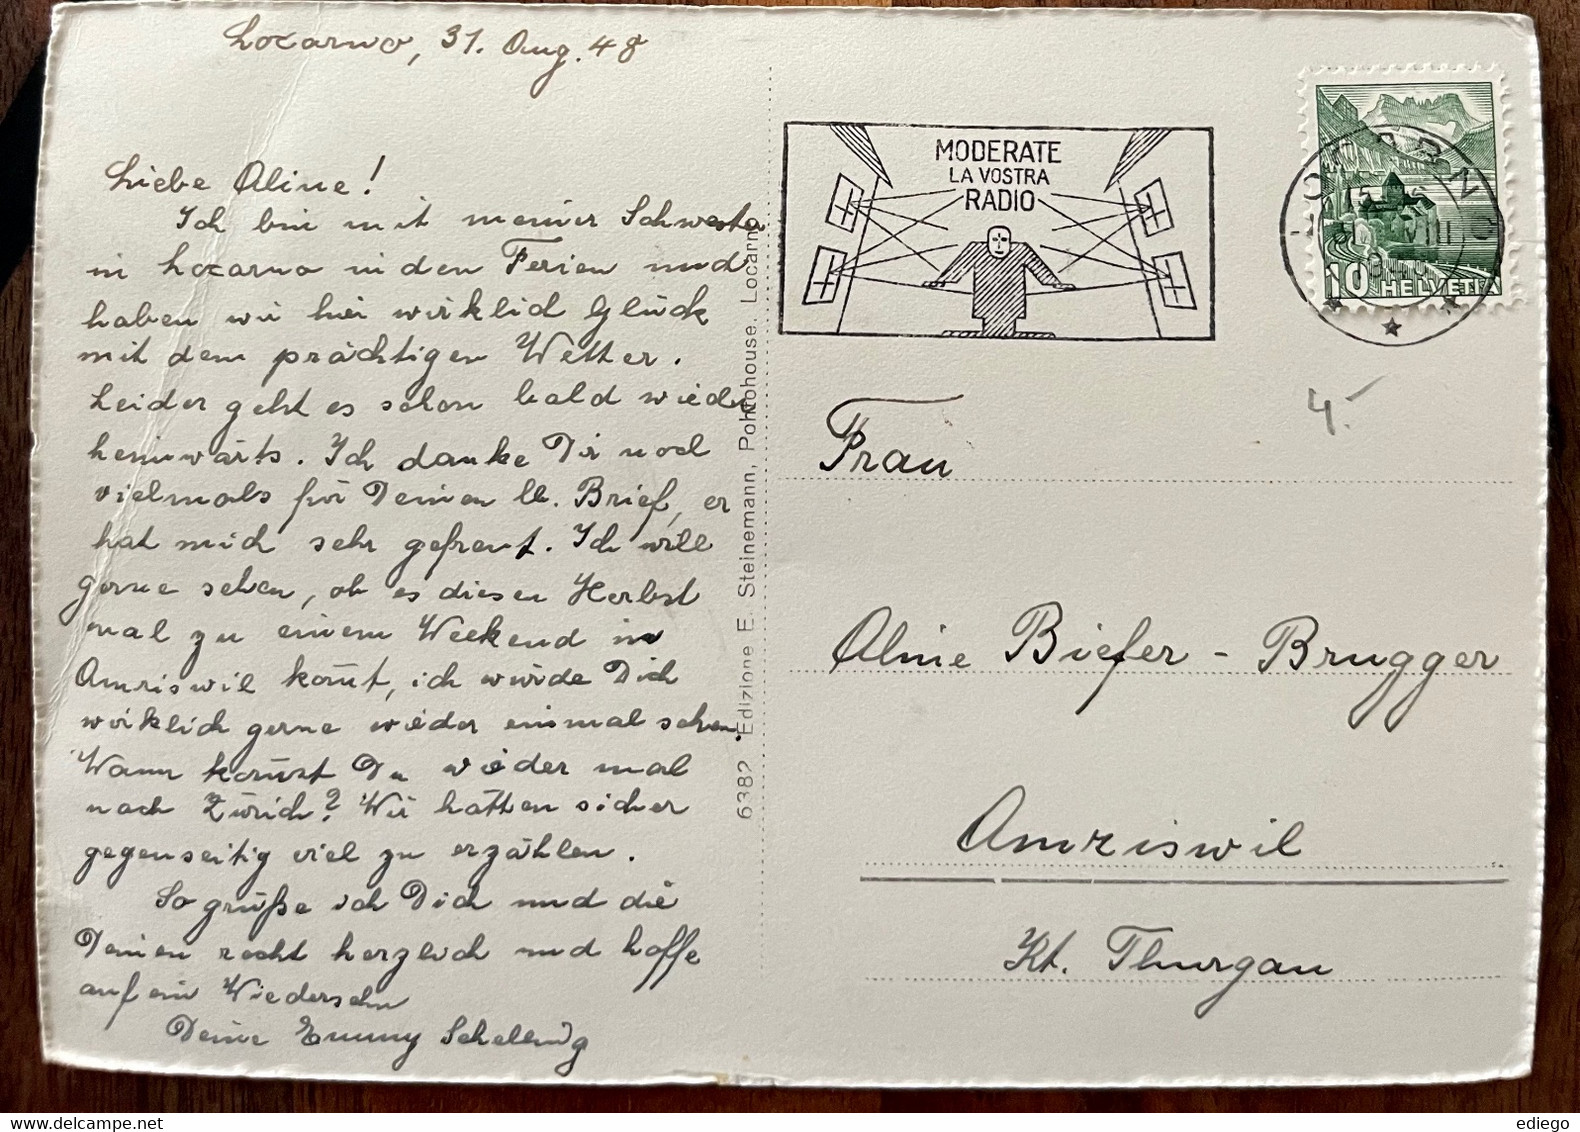 Locarno, 31. Aug. 48
Liebe Aline!
Ich bin mit meiner Schwester
in Locarno in den Ferien und
haben wir hier wirklich Glück
mit dem prächtigen Wetter.
Leider geht es schon bald wieder
heimwärts. Ich danke Dir noch
vielmals für Deinen lb. Brief, er
hat mich sehr gefreut. Ich will
gerne sehen, ob es diesen Herbst
mal zu einem Weekend in
Amriswil kom̅t, ich würde Dich
wirklich gerne wieder einmal sehen.
Wann kom̅st Du wieder mal
nach Zürich? Wir hätten sicher
gegenseitig viel zu erzählen.
So grüße ich Dich und die
Deinen recht herzlich und hoffe
auf ein Wiedersehn
Deine Emmy Schelling
6382 Edizione E. Steinemann, Pohtohouse, Locarno
MODERATE
LA VOSTRA
RADIO
LOCARNO
10 HELVETIA
4.-
Frau
Aline Biefer - Brugger
Amriswil
Kt. Thurgau
ediego